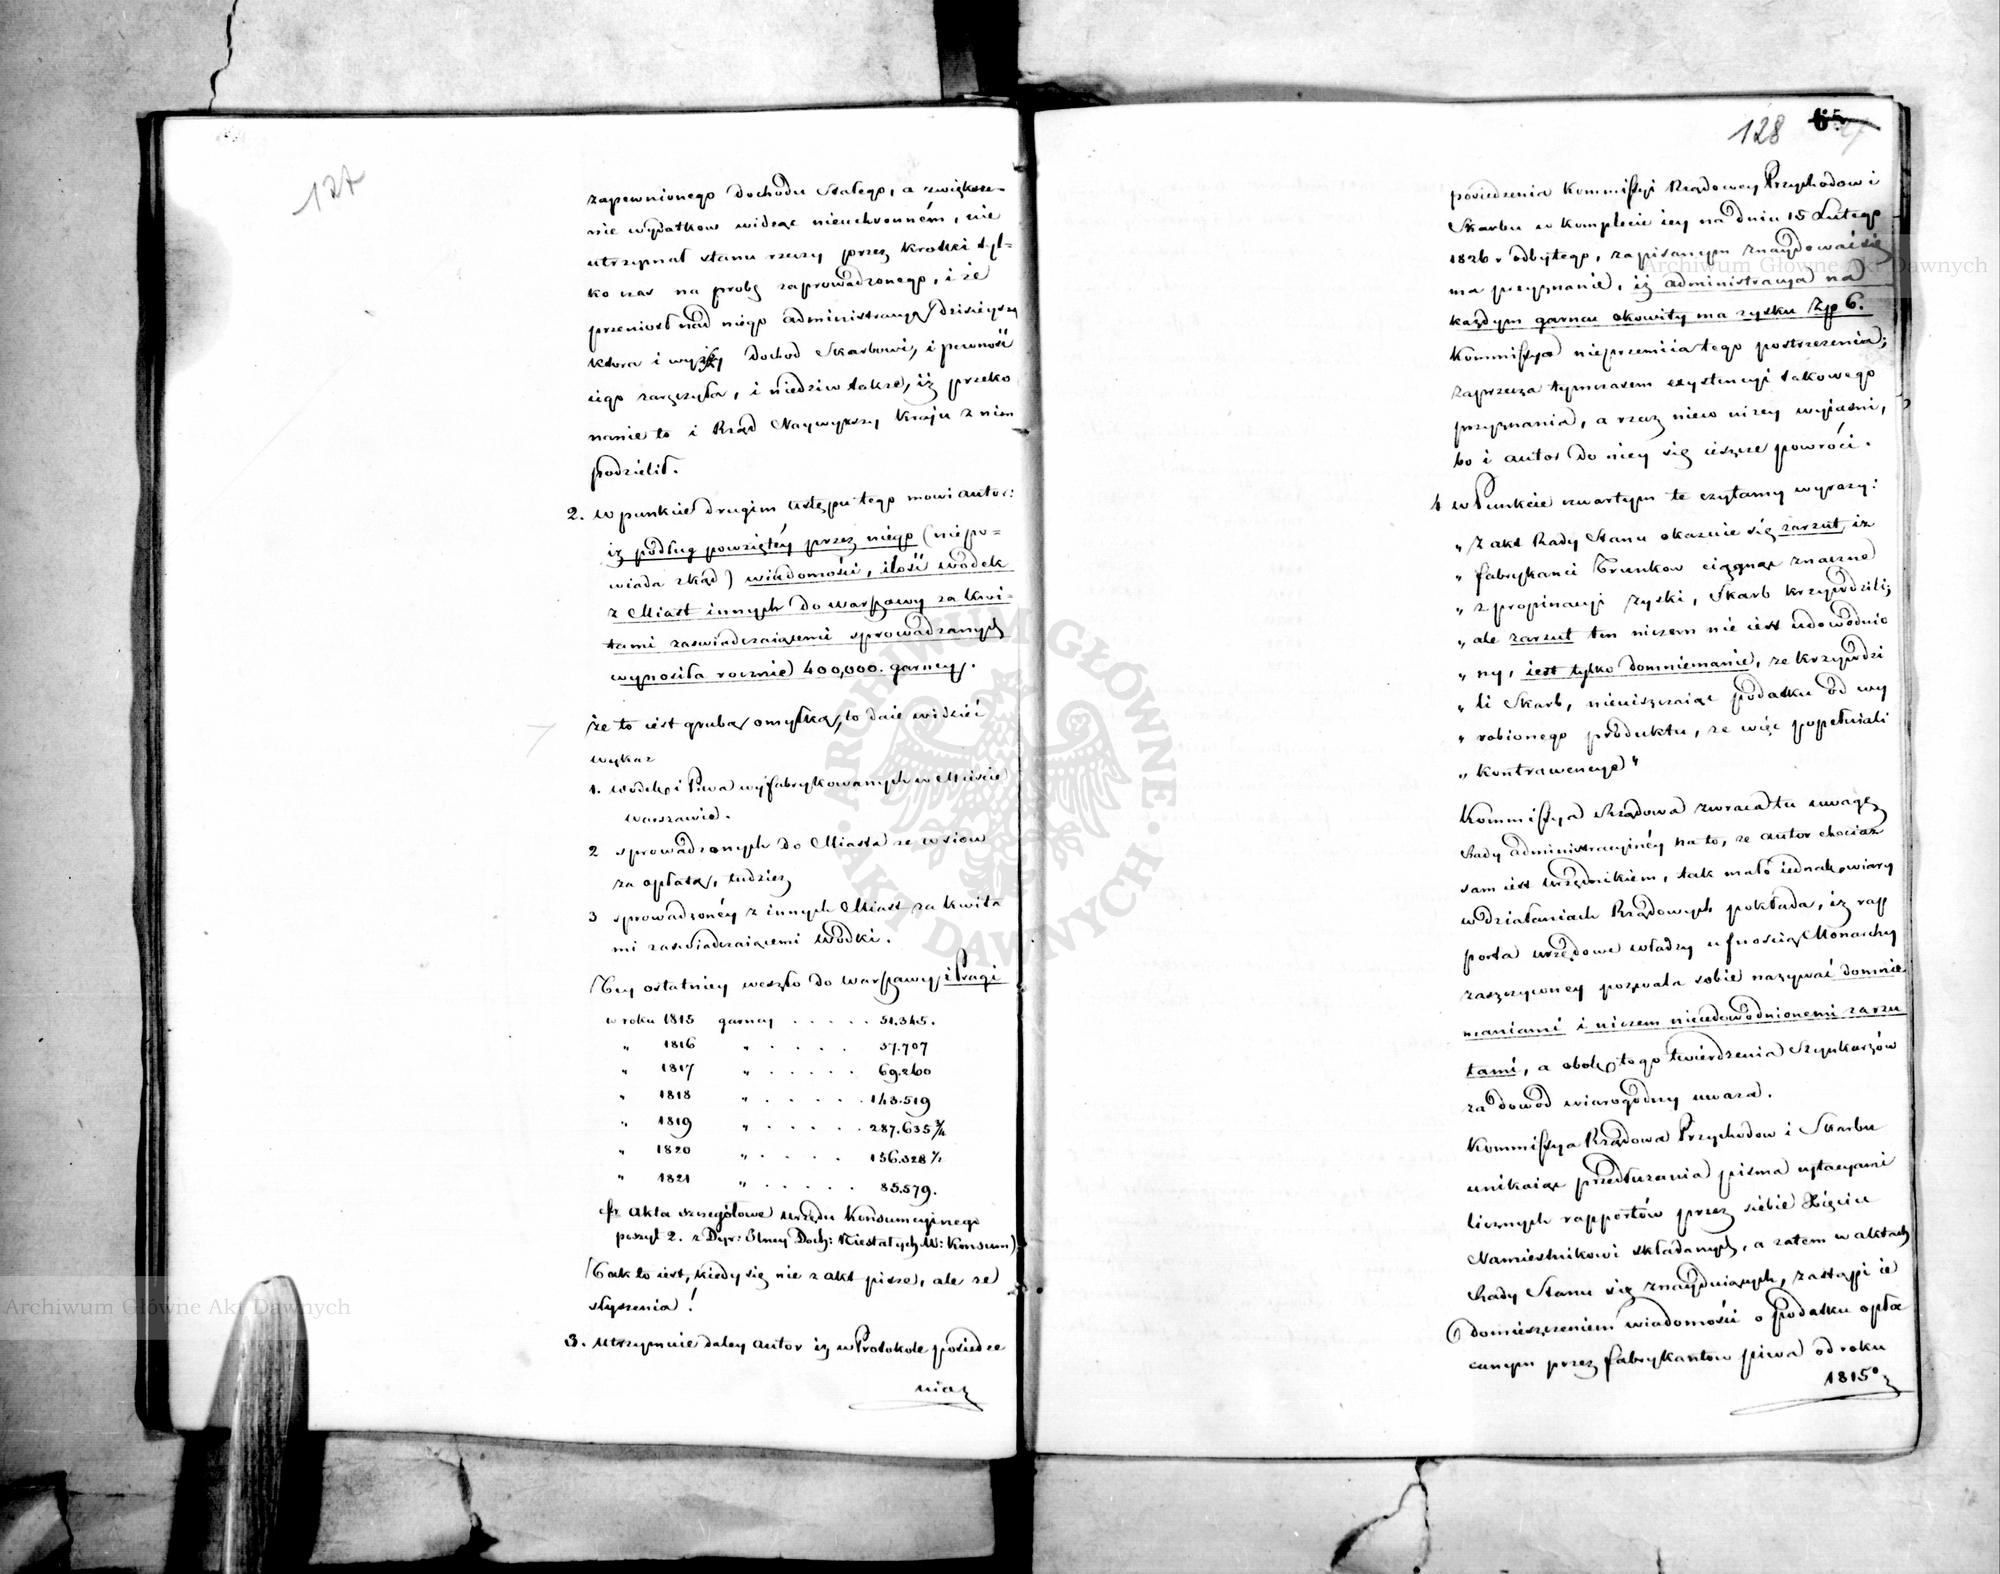 127
zapewnionego dochodu stałego, a zwiększe-
nie wydatkow widząc nieuchronném, nie
utrzymał stanu rzeczy przez krotki tyl-
ko czas na probę zaprowadzonego, i że
przeniosł nad niégo administracyą dzisieyszą
ktora i wyższy dochod Skarbowi, i pewność
iego zaręczyła, i niedziw także, iż przeko
nanie to i Rząd Naywyższy Kraju z nim
podzielił.
2. W punkcie drugim ustępu tego mowi autor:
iż podług powziętéy przez niego (niepo-
wiada zkąd) wiadomości, ilość wódek
z Miast innych do Warszawy za kwi-
tami zaswiadczaiącemi sprowadzanych
wynosiła rocznie 400,000. garncy.
że to iest grubą omyłką, to daie widzieć
wykaz
1. Wódek i Piwa wyfabrykowanych w Mieście
Warszawie.
2 sprowadzonych do Miasta ze wsiow
za opłatą, tudzież
3 sprowadzonéy z innych Miast za kwita
mi zaswiadczaiącemi wódki.
Téy ostatniey weszło do Warszawy i Pragi
w roku 1815 garncy . . . . . 51.345.
" 1816 " . . . . 37.707
" 1817 " . . . . . 69.260
" 1818 " . . . . . 143.519
" 1819 " . . . . . 287.635 3/4
" 1820 " . . . . 156.328 1/2
" 1821 " . . . . . 85.579.
Akta szczegółowe urzędu Konsumcyjnego
poszyt 2. z Dyr: Doch: Niestałych W: Konsum)
Tak to iest, kiedy się nie z akt pisze, ale ze
słyszenia!
3. Utrzymuie daley autor iż w Protokole posiedze
nia
128
posiedzenia Kommissyi Rządowey Przychodow i
Skarbu w komplecie iey na dniu 15 Lutego
1826 r odbytego, zapisanym znaydować się
ma przyznanie, iż administracya na
każdym garncu okowity ma zysku Zp 6.
Kommissya nieprzemiia tego postrzeżenia;
zaprzecza tymczasem exystencyi takowego
przyznania, a rzecz niżey wyiaśni,
bo i autor do niey się ieszcze powróci.
4 W Punkcie czwartym te czytamy wyrazy:
" Z akt Rady Stanu okazuie się zarzut, iż
" fabrykanci Trunkow ciągnąc znaczne
" z propinacyi zyski, Skarb krzywdzili;
" ale zarzut ten niczem nie iest udowodnio
" ny, iest tylko domniemanie, że krzywdzi
" li Skarb, nieuiszczaiąc podatku od wy
" robionego produktu, że więc popełniali
" kontrawencye "
Kommissya Rządowa zwraca tu uwagę
Rady administracyinéy na to, że autor chociaż
sam iest urzędnikiem, tak mało iednak wiary
w działaniach Rządowych pokłada, iż rap
porta urzędowe władzy ufnością Monarchy
zaszczyconey pozwala sobie nazywać domnie
maniami i niczem nieudowodnionemi zarzu
tami, a obok tego twierdzenia Szynkarzów
za dowód wiarogodny uważa.
Kommissya Rządowa Przychodow i Skarbu
unikaiąc przedłużania pisma cytacyami
licznych rapportów przez siebie Xięciu
Namiestnikowi składanych, a zatem w aktach
Rady Stanu się znayduiących, zastąpi ie
domieszczeniem wiadomości o podatku opła
canym przez fabrykantow piwa od roku
1815o
Archiwum Główne Akt Dawnych
Archiwum Główne Akt Dawnych
ARCHIWUM GŁÓWNE · AKT DAWNYCH ·